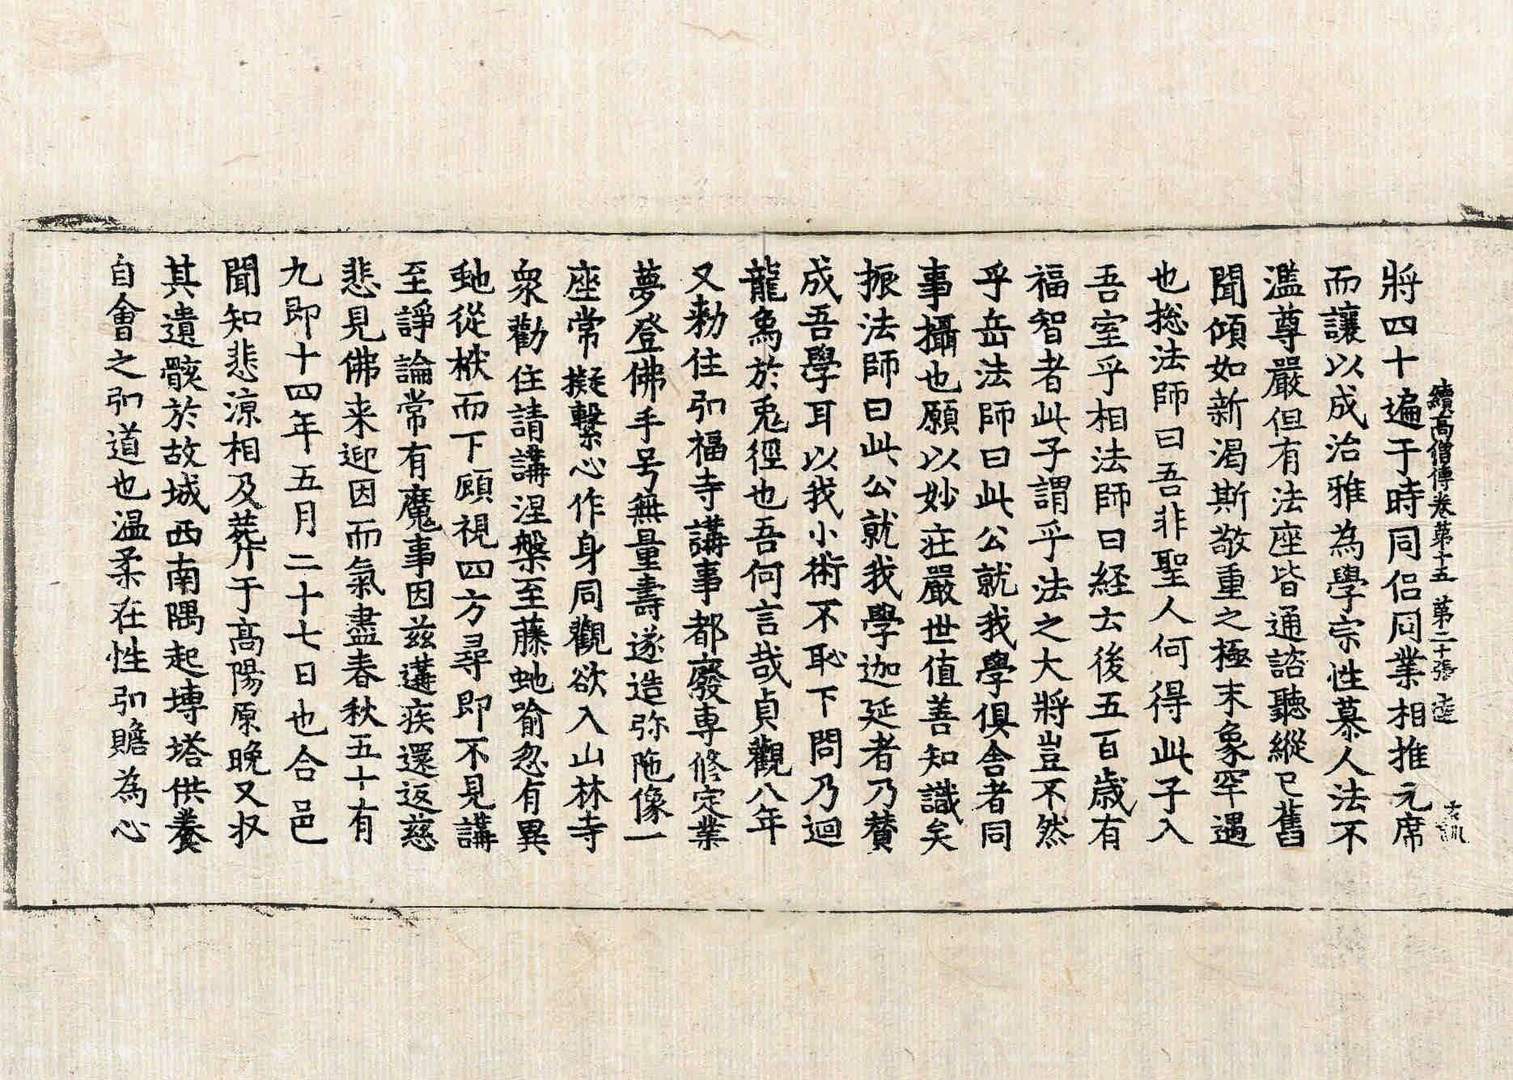 續高僧傳卷第十五 第二十張
將四十遍于時同侶同業相推元席
而讓以成治雅為學宗性慕人法不
濫尊嚴但有法座皆通諮聽縱已舊
聞傾如新渴斯敬重之極末象罕遇
也捴法師曰吾非聖人何得此子入
吾室乎相法師曰経云後五百歳有
福智者此子謂乎法之大將豈不然
乎岳法師曰此公就我學俱舍者同
事攝也願以妙莊嚴世值善知識矣
振法師曰此公就我學迦延者乃賛
成吾學耳以我小術不恥下問乃迴
龍象於兎徑也吾何言哉貞觀八年
又勑住弘福寺講事都廢専修定業
夢登佛手号無量壽遂造弥陁像一
座常擬繫心作身同觀欲入山林寺
衆勸住請講涅槃至藤虵喻忽有異
虵從栿而下顧視四方尋即不見講
至諍論常有魔事因茲遘疾還返慈
悲見佛来迎因而氣盡春秋五十有
九即十四年五月二十七日也合邑
聞知悲涼相及葬于髙陽原晚又収
其遺骸於故城西南隅起塼塔供養
自會之弘道也温柔在性弘贍為心